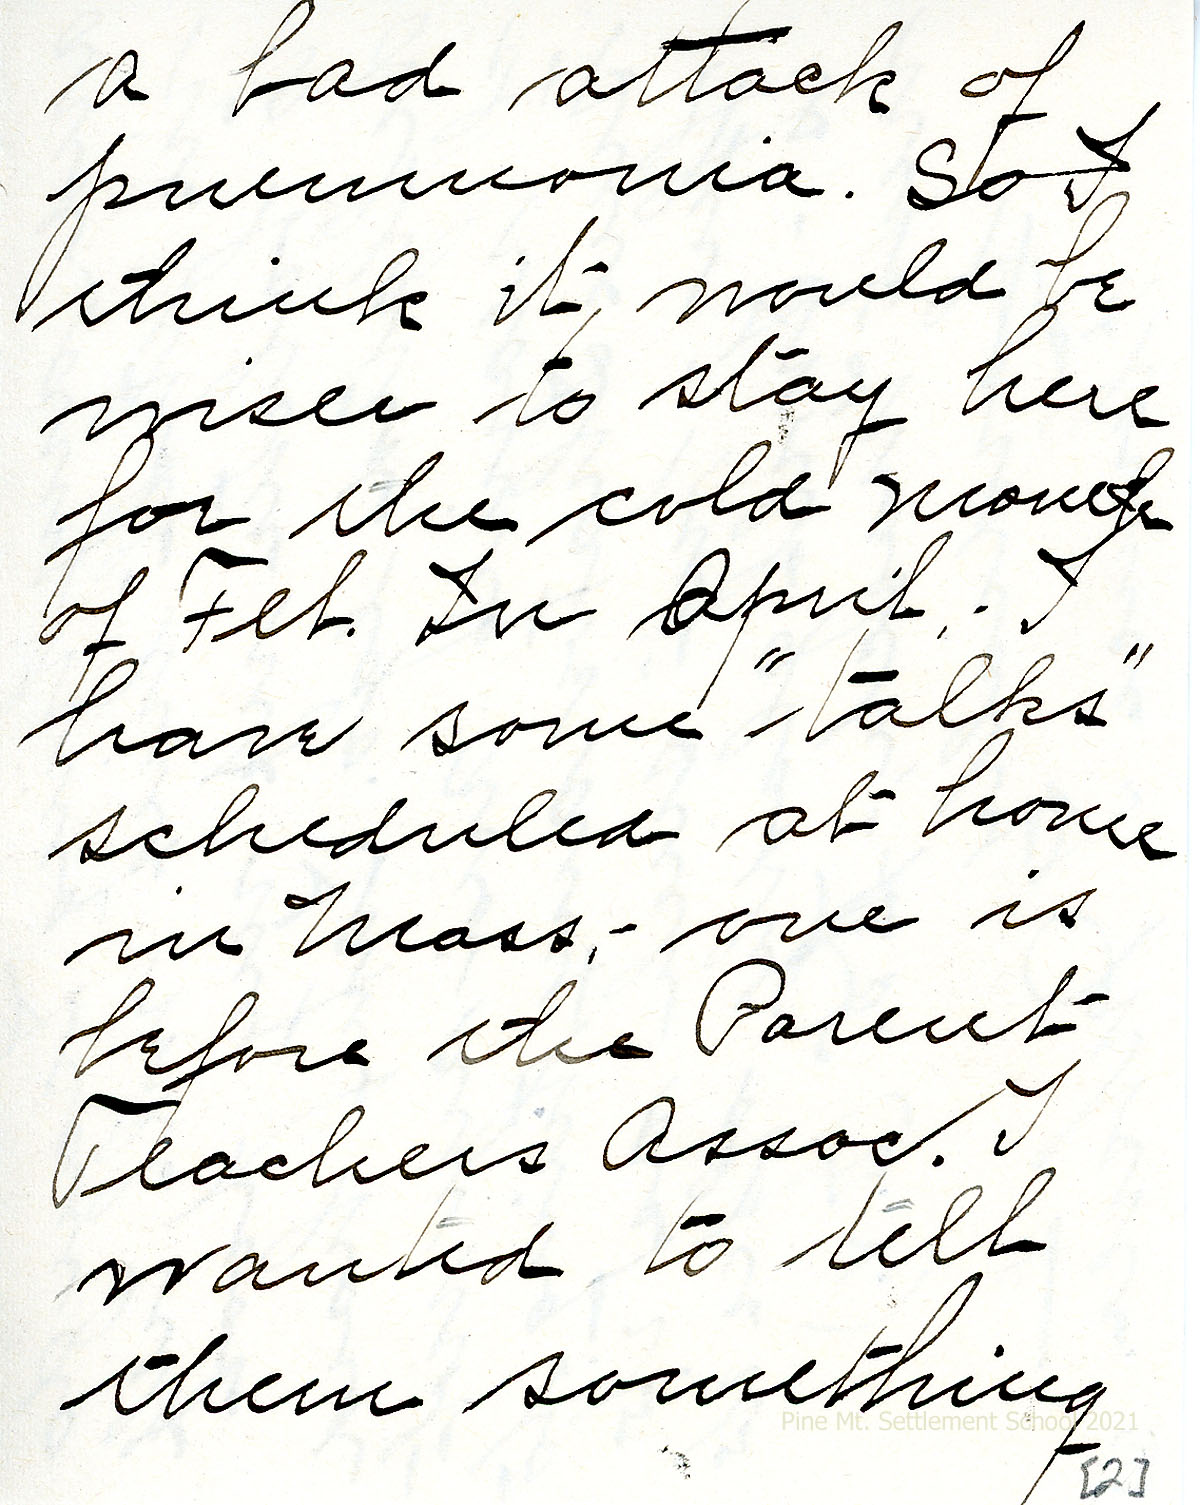 a bad attack of
pneumonia. So I
think it would be
wiser to stay here
for the cold month
of Feb. In April, - I
have some "talks"
scheduled at home
in Mass, - one is
before the Parent
Teachers Assoc. I
wanted to tell
them something
Pine Mt. Settlement School 2021
[2]